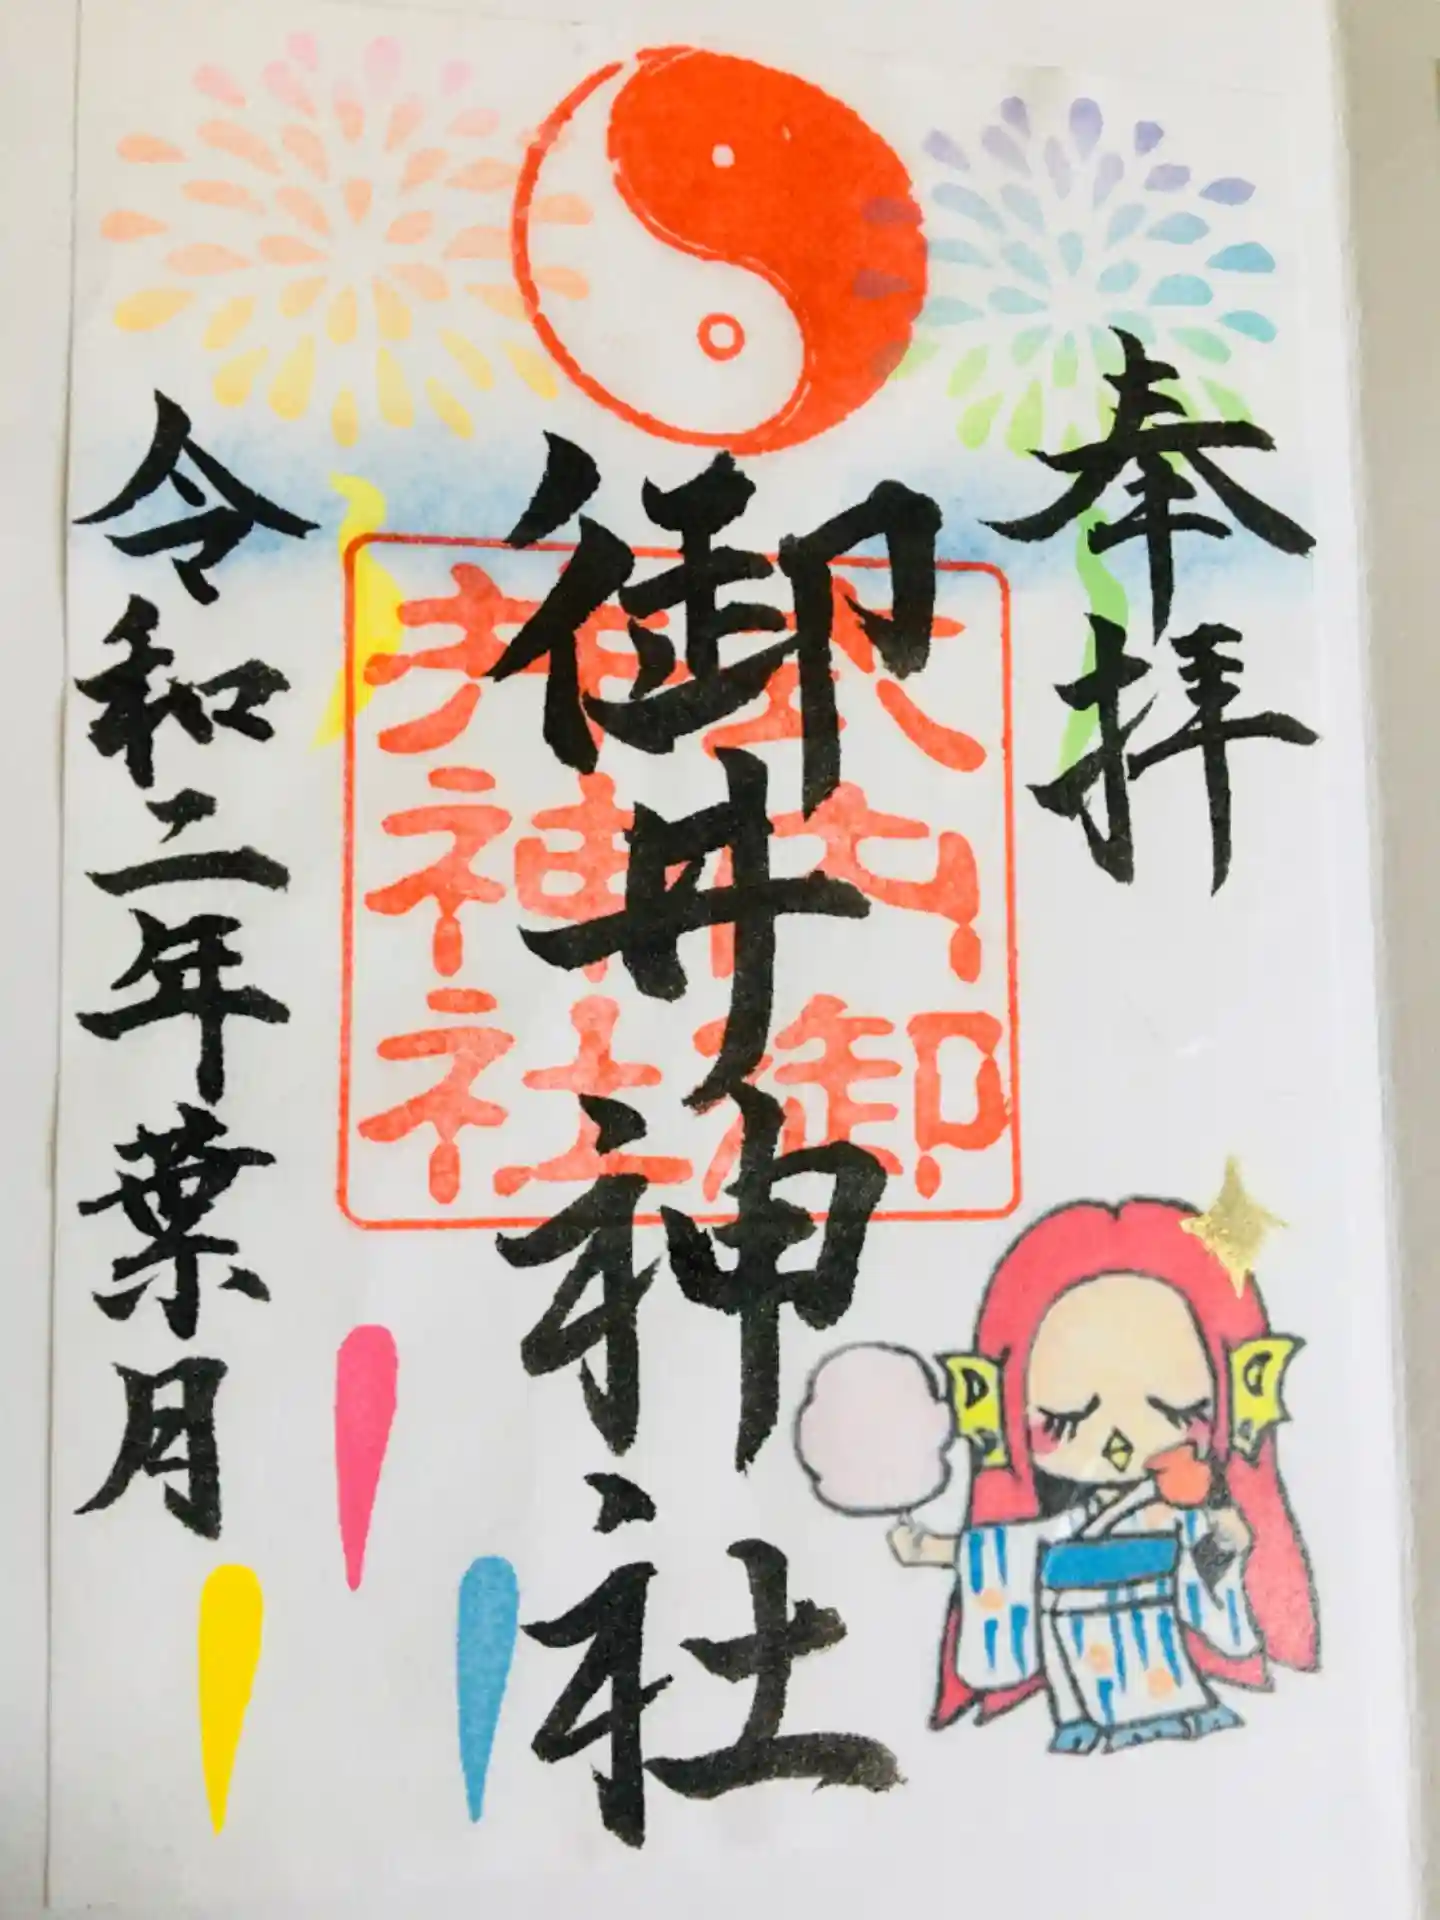 奉拝
御井神社
大山御
井神社
令和二年葉月